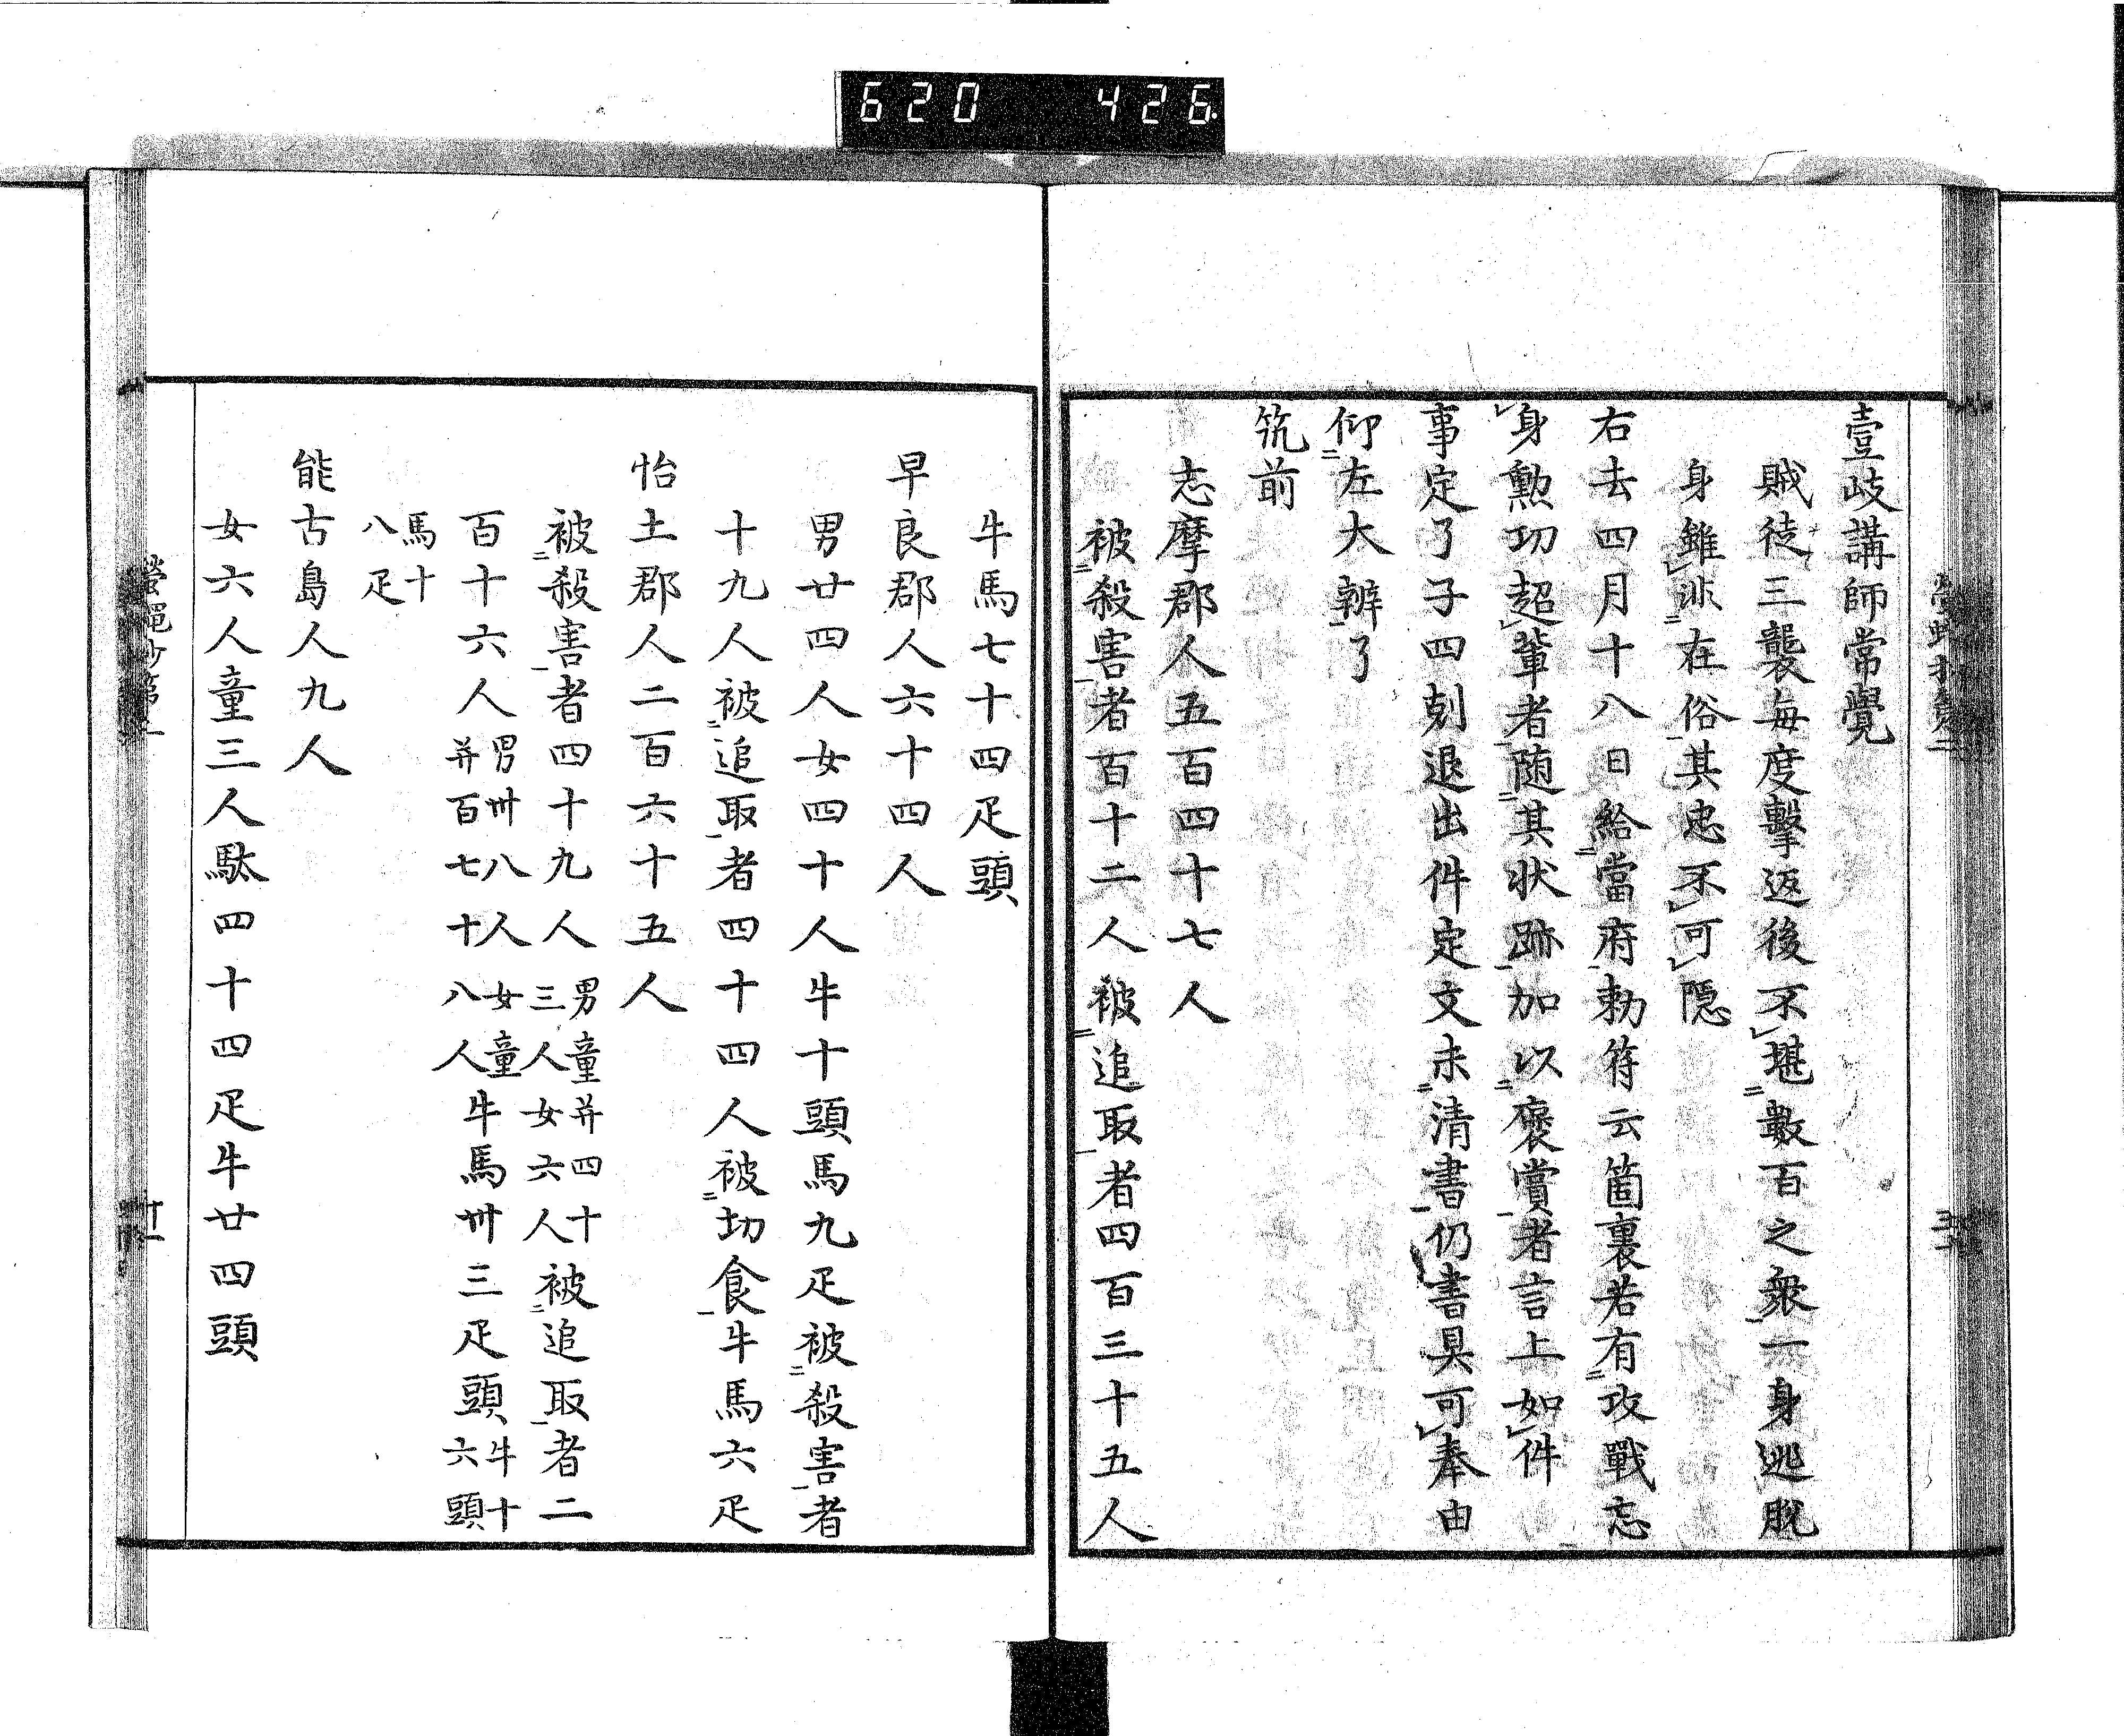 620 426
壹岐講師常覺
賊徒三襲每度擊返後不堪數百之衆一身逃脫
身雖非在俗其忠不可隱
右去四月十八日給當府勅符云箇裏若有攻戰忘
身勲功超輩者隨其狀跡加以褒賞者言上如件
事定了子四刻退出件定文未清書仍書具可奉由
仰左大辨了
筑前
志摩郡人五百四十七人
被殺害者百十二人被追取者四百三十五人
牛馬七十四疋頭
早良郡人六十四人
男廿四人女四十人牛十頭馬九疋被殺害者
十九人被追取者四十四人被切食牛馬六疋
怡土郡人二百六十五人
被殺害者四十九人男童并四十三人女六人被追取者二
百十六人男卅八人女童并百七十八人牛馬卅三疋頭牛十六頭
馬十八疋
能古島人九人
女六人童三人駄四十四疋牛廿四頭
螢蠅抄第二
廿一